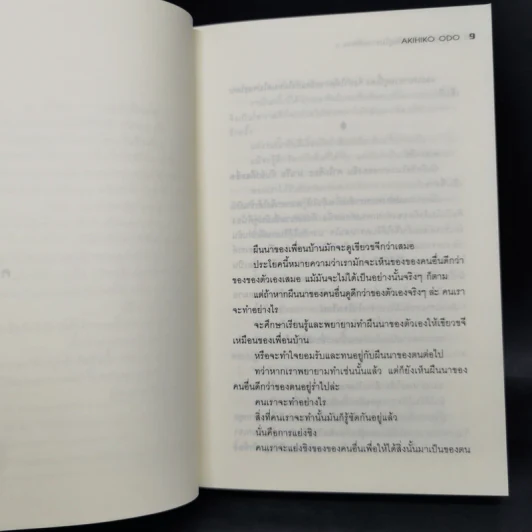 AKIHIKO ODO 9
ผืนนาของเพื่อนบ้านมักจะดูเขียวขจีกว่าเสมอ
ประโยคนี้หมายความว่าเรามักจะเห็นของของคนอื่นดีกว่า
ของของตัวเองเสมอ แม้มันจะไม่ได้เป็นอย่างนั้นจริงๆ ก็ตาม
แต่ถ้าหากผืนนาของคนอื่นดูดีกว่าของตัวเองจริงๆ ล่ะ คนเรา
จะทำอย่างไร
จะศึกษาเรียนรู้และพยายามทำผืนนาของตัวเองให้เขียวขจี
เหมือนของเพื่อนบ้าน
หรือจะทำใจยอมรับและทนอยู่กับผืนนาของตนต่อไป
ทว่าหากเราพยายามทำเช่นนั้นแล้ว แต่ก็ยังเห็นผืนนาของ
คนอื่นดีกว่าของตนอยู่ร่ำไปล่ะ
คนเราจะทำอย่างไร
สิ่งที่คนเราจะทำนั้นมันก็รู้ชัดกันอยู่แล้ว
นั่นคือการแย่งชิง
คนเราจะแย่งชิงของของคนอื่นเพื่อให้ได้สิ่งนั้นมาเป็นของตน